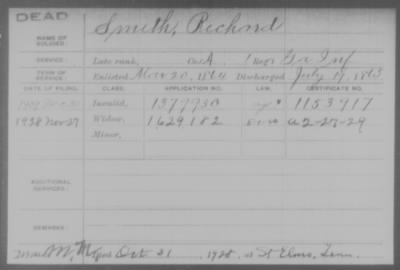 DEAD
NAME OF SOLDIER: Smith, Richard
SERVICE: Late rank, Co. A, 1 Reg't Ga Inf
TERM OF SERVICE: Enlisted Discharged July 19, 1865
DATE OF FILING. CLASS. APPLICATION NO. LAW. CERTIFICATE NO.
Invalid, 1379930 1153717
1928 Nov 27 Widow, 1629182 a2-27-29
Minor,
ADDITIONAL SERVICES:
REMARKS:
Oct 21, 1928, at St Elmo, Tenn.